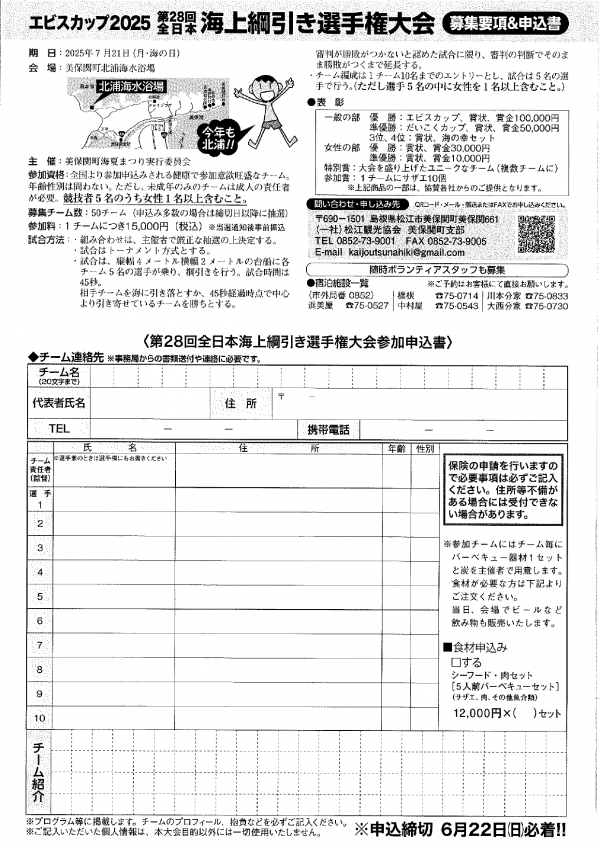 エビスカップ2025 第28回全日本 海上綱引き選手権大会 募集要項&申込書
期　日：2025年7月21日(月・海の日)
会　場：美保関町北浦海水浴場
北浦海水浴場
今年も北浦!!
主　催：美保関町海夏まつり実行委員会
参加資格：全国より参加申込みされる健康で参加意欲旺盛なチーム。
年齢性別は問わない。ただし、未成年のみのチームは成人の責任者
が必要。競技者5名のうち女性1名以上含むこと。
募集チーム数：50チーム（申込み多数の場合は締切日以降に抽選）
参加料：1チームにつき15,000円（税込）※当選通知後事前振込
試合方法：・組み合わせは、主催者で厳正な抽選の上決定する。
・試合はトーナメント方式とする。
・試合は、縦幅4メートル横幅2メートルの台船に各
チーム5名の選手が乗り、綱引きを行う。試合時間は
45秒。
相手チームを海に引き落とすか、45秒経過時点で中心
より引き寄せているチームを勝ちとする。
審判が勝敗がつかないと認めた試合に限り、審判の判断でそのま
ま勝敗がつくまで延長する。
・チーム編成は1チーム10名までのエントリーとし、試合は5名の選
手で行う。（ただし選手5名の中に女性を1名以上含むこと。）
●表　彰
一般の部　優　勝：エビスカップ、賞状、賞金100,000円
準優勝：だいこくカップ、賞状、賞金50,000円
3位、4位：賞状、海の幸セット
女性の部　優　勝：賞状、賞金30,000円
準優勝：賞状、賞金10,000円
特別賞：大会を盛り上げたユニークなチーム（複数チームに）
参加賞：1チームにサザエ10個
※上記商品の一部は、協賛各社からのご提供となります。
問い合わせ・申し込み先 QRコード・メール・郵送またはFAXでお申し込みください。
〒690-1501 島根県松江市美保関町美保関661
（一社）松江観光協会　美保関町支部
TEL 0852-73-9001　FAX 0852-73-9005
E-mail　kaijoutsunahiki@gmail.com
随時ボランティアスタッフも募集
●宿泊施設一覧　※ご予約はお客様にて直接お願いします。
（市外局番 0852） 橋根 ☎75-0714 川本分家 ☎75-0833
浜美屋 ☎75-0527 中村屋 ☎75-0543 大西分家 ☎75-0730
〈第28回全日本海上綱引き選手権大会参加申込書〉
◆チーム連絡先 ※事務局からの書類送付や連絡に必要です。
チーム名
（20文字まで）
代表者氏名　住　所　〒　－
TEL　－　－　携帯電話　－　－
氏　名　住　所　年齢　性別
チーム責任者（監督） ※選手兼のときは選手欄にもお書きください
選　手
1
2
3
4
5
6
7
8
9
10
保険の申請を行いますの
で必要事項は必ずご記入
ください。住所等不備が
ある場合には受付できな
い場合があります。
※参加チームにはチーム毎に
バーベキュー器材1セット
と炭を主催者で用意します。
食材が必要な方は下記より
ご注文ください。
当日、会場でビールなど
飲み物も販売いたします。
■食材申込み
□する
シーフード・肉セット
[5人前バーベキューセット]
（サザエ、肉、その他魚介類）
12,000円×（　）セット
チーム紹介
※プログラム等に掲載します。チームのプロフィール、抱負などを必ずご記入ください。
※ご記入いただいた個人情報は、本大会目的以外には一切使用いたしません。
※申込締切 6月22日(日)必着!!